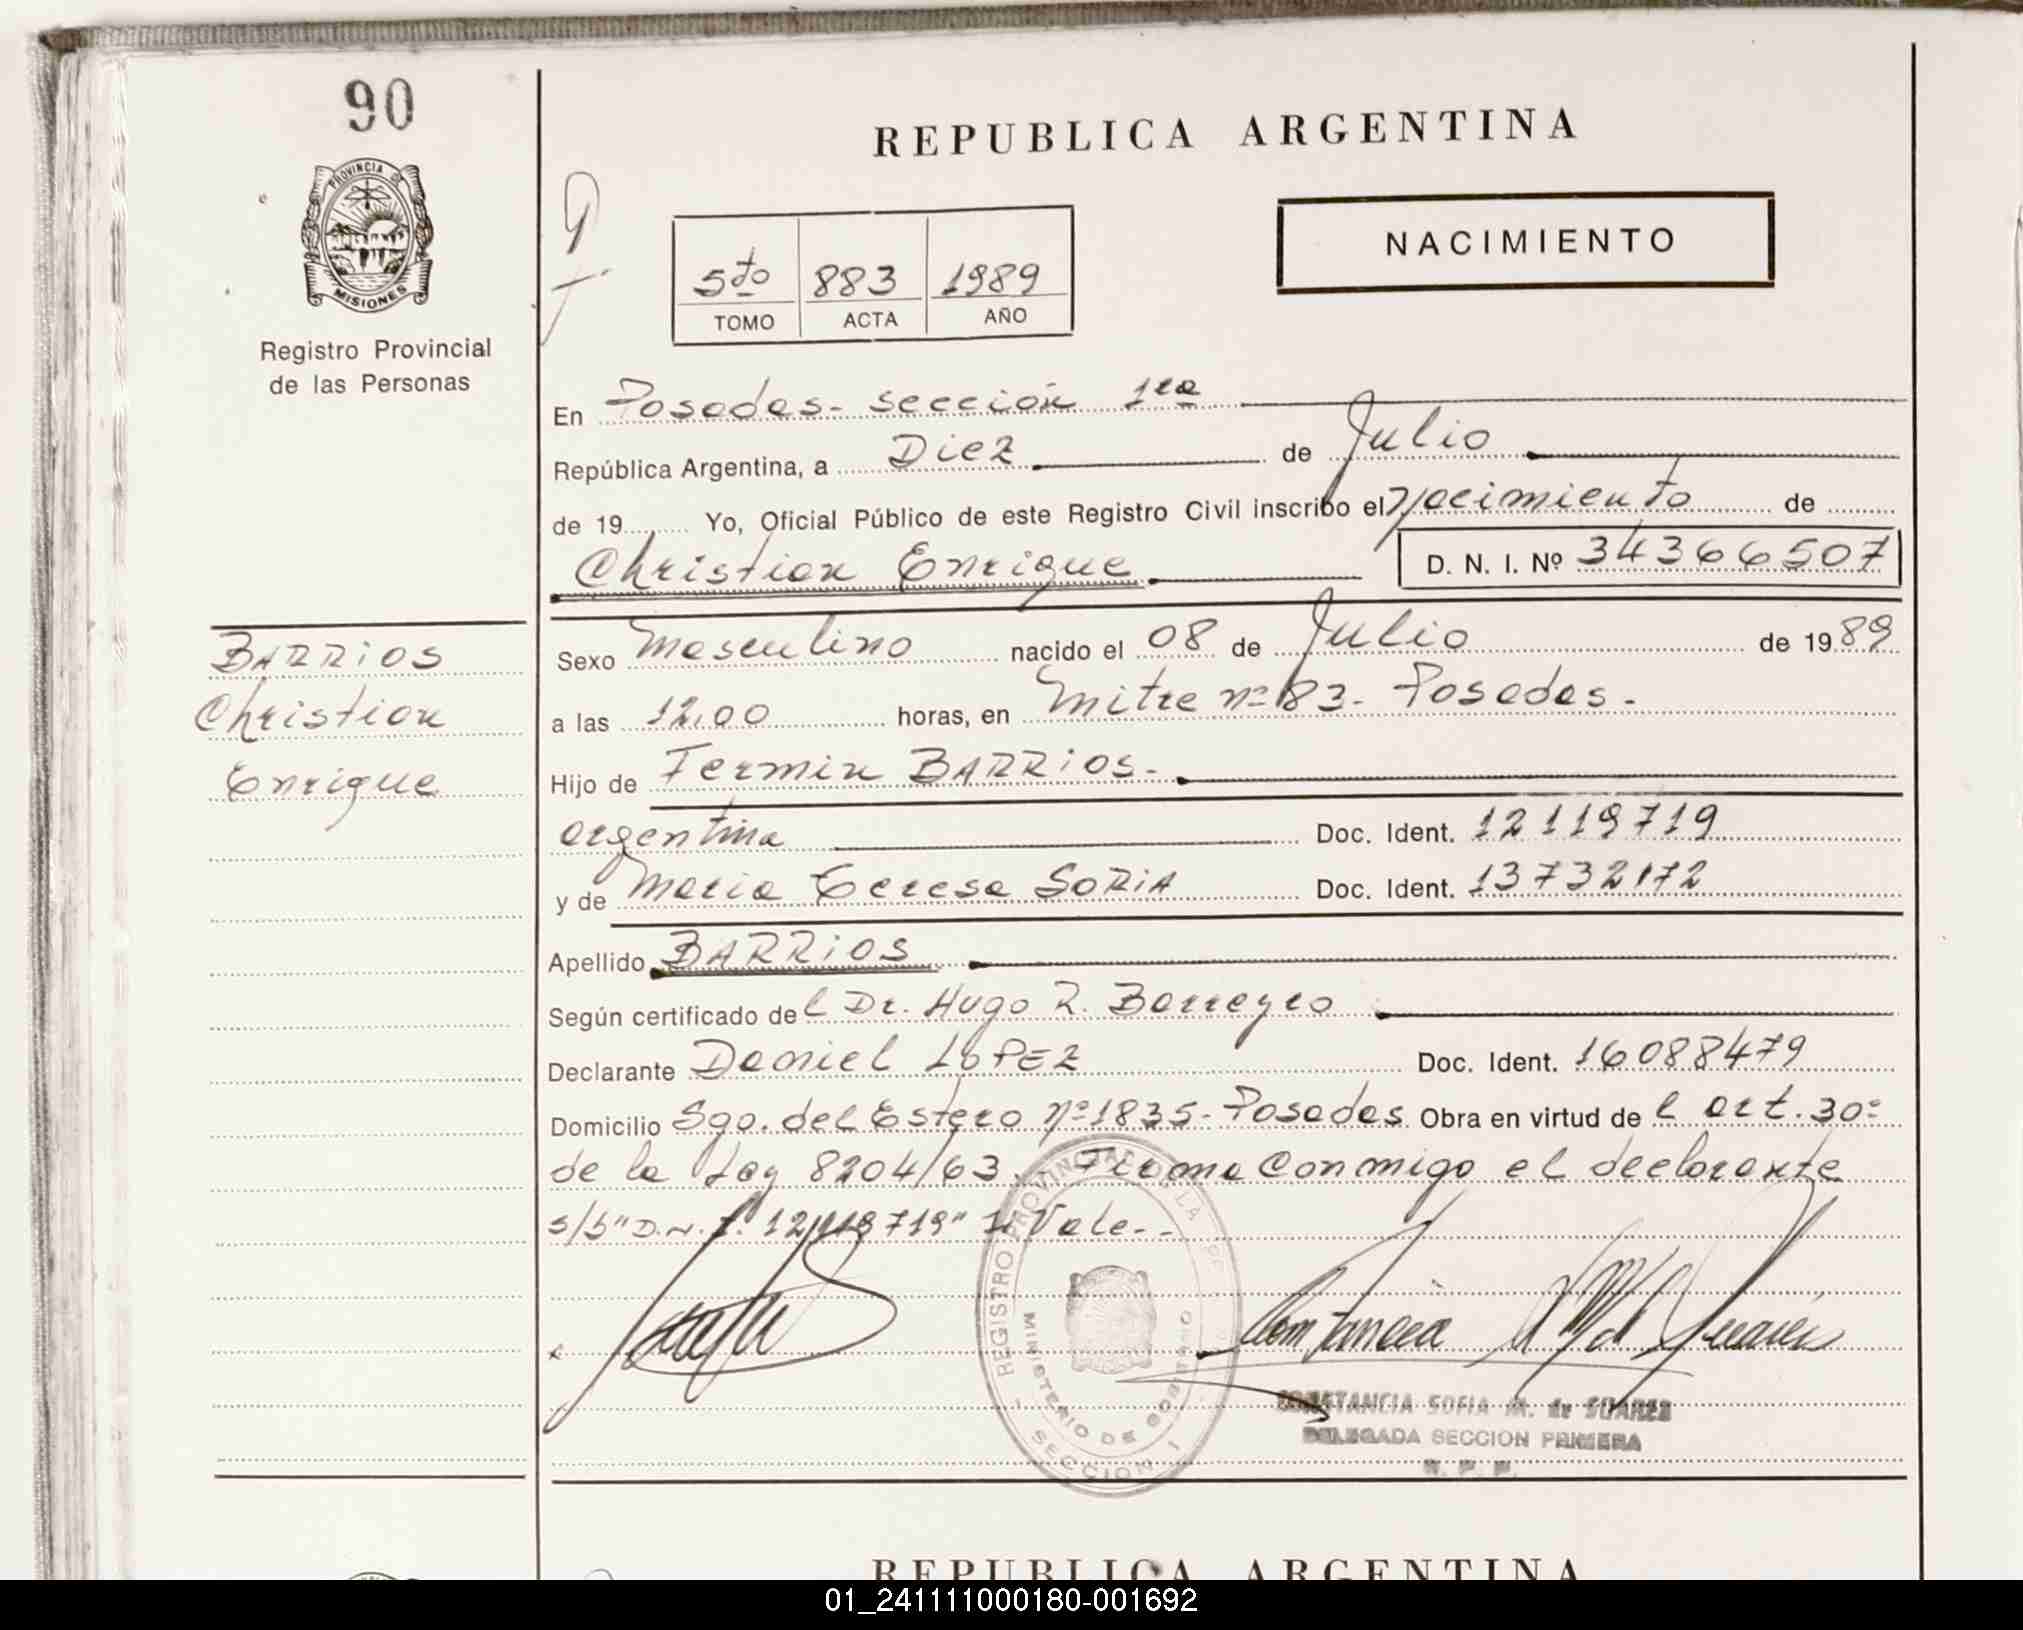 90
PROVINCIA DE
MISIONES
Registro Provincial
de las Personas
REPUBLICA ARGENTINA
NACIMIENTO
5to 883 1989
TOMO ACTA AÑO
En Posadas - sección 1ra
República Argentina, a Diez de Julio
de 19 Yo, Oficial Público de este Registro Civil inscribo el nacimiento de
Christian Enrique D. N. I. Nº 34366507
BARRIOS
Christian
Enrique
Sexo Masculino nacido el 08 de Julio de 1989
a las 12,00 horas, en Mitre nº 83 - Posadas -
Hijo de Fermin BARRIOS -
argentina Doc. Ident. 12119719
y de Maria Teresa SORIA Doc. Ident. 13732172
Apellido BARRIOS
Según certificado del Dr. Hugo R. Barreyro
Declarante Daniel LOPEZ Doc. Ident. 16088479
Domicilio Sgo. del Estero Nº 1835 - Posadas Obra en virtud del art. 30º
de la Ley 8204/63. Firma conmigo el declarante
s/b "D.N.I. 12119719" Vale - -
REGISTRO PROVINCIAL DE LAS
MINISTERIO DE GOBIERNO
SECCION 1
CONSTANCIA SOFIA M. de SUAREZ
DELEGADA SECCION PRIMERA
R. P. P.
REPUBLICA ARGENTINA
01_241111000180-001692